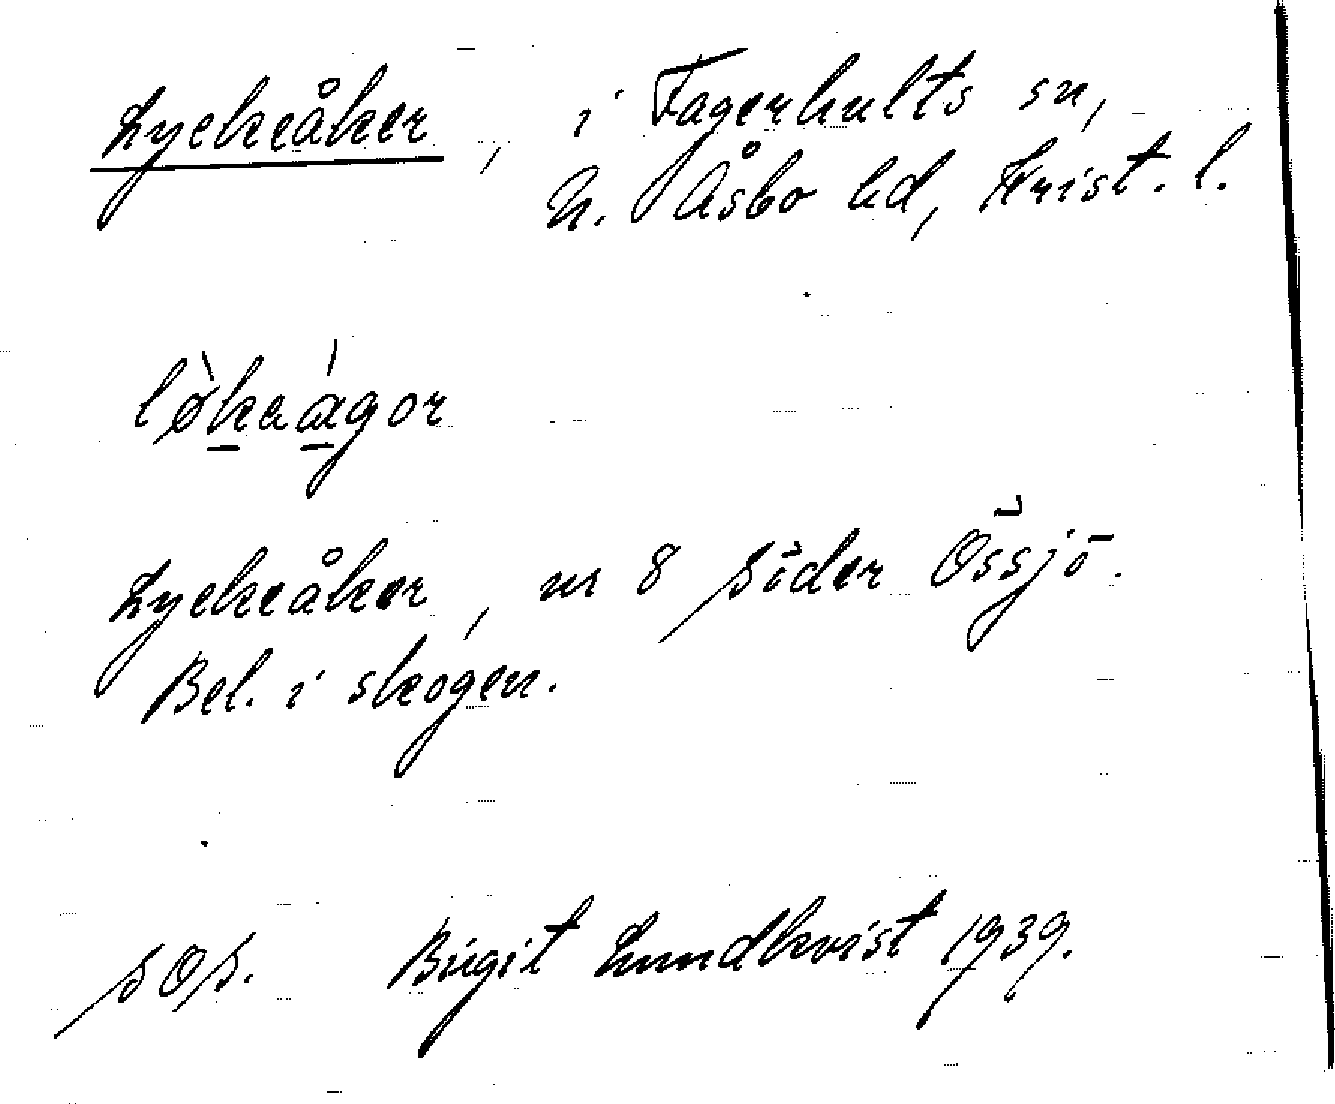 Lyckeåker, i Fagerhults sn,
N. Åsbo hd, Krist. l.
lø̀kaágor
Lyckeåker, nr 8 Söder Össjö.
Bel. i skogen.
SOS. Birgit Lundkvist 1939.